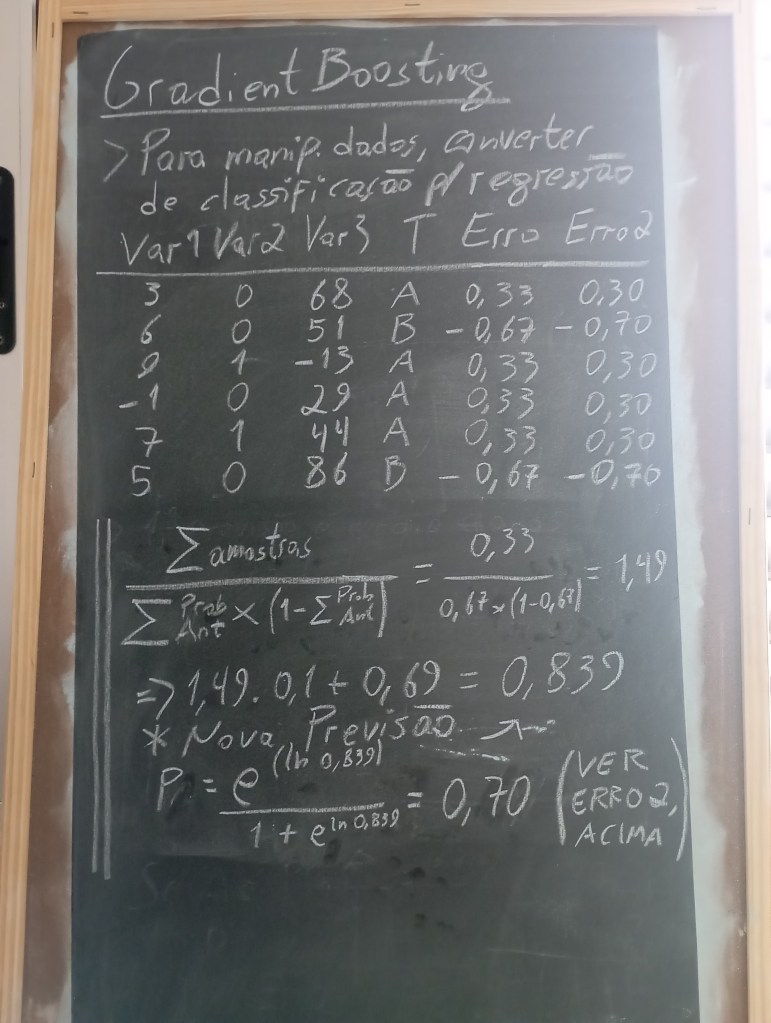 Gradient Boosting
> Para manip. dados, converter
de classificação p/ regressão
Var1 Var2 Var3 T Erro Erro2
3 0 68 A 0,33 0,30
6 0 51 B -0,67 -0,70
9 1 -13 A 0,33 0,30
-1 0 29 A 0,33 0,30
7 1 44 A 0,33 0,30
5 0 86 B -0,67 -0,70
Σ amostras / Σ Prob Ant × (1 - Σ Prob Ant) = 0,33 / 0,67 × (1-0,67) = 1,49
=> 1,49 . 0,1 + 0,69 = 0,839
* Nova Previsão
P = e^(ln 0,839) / 1 + e^ln 0,839 = 0,70 (VER ERRO 2, ACIMA)